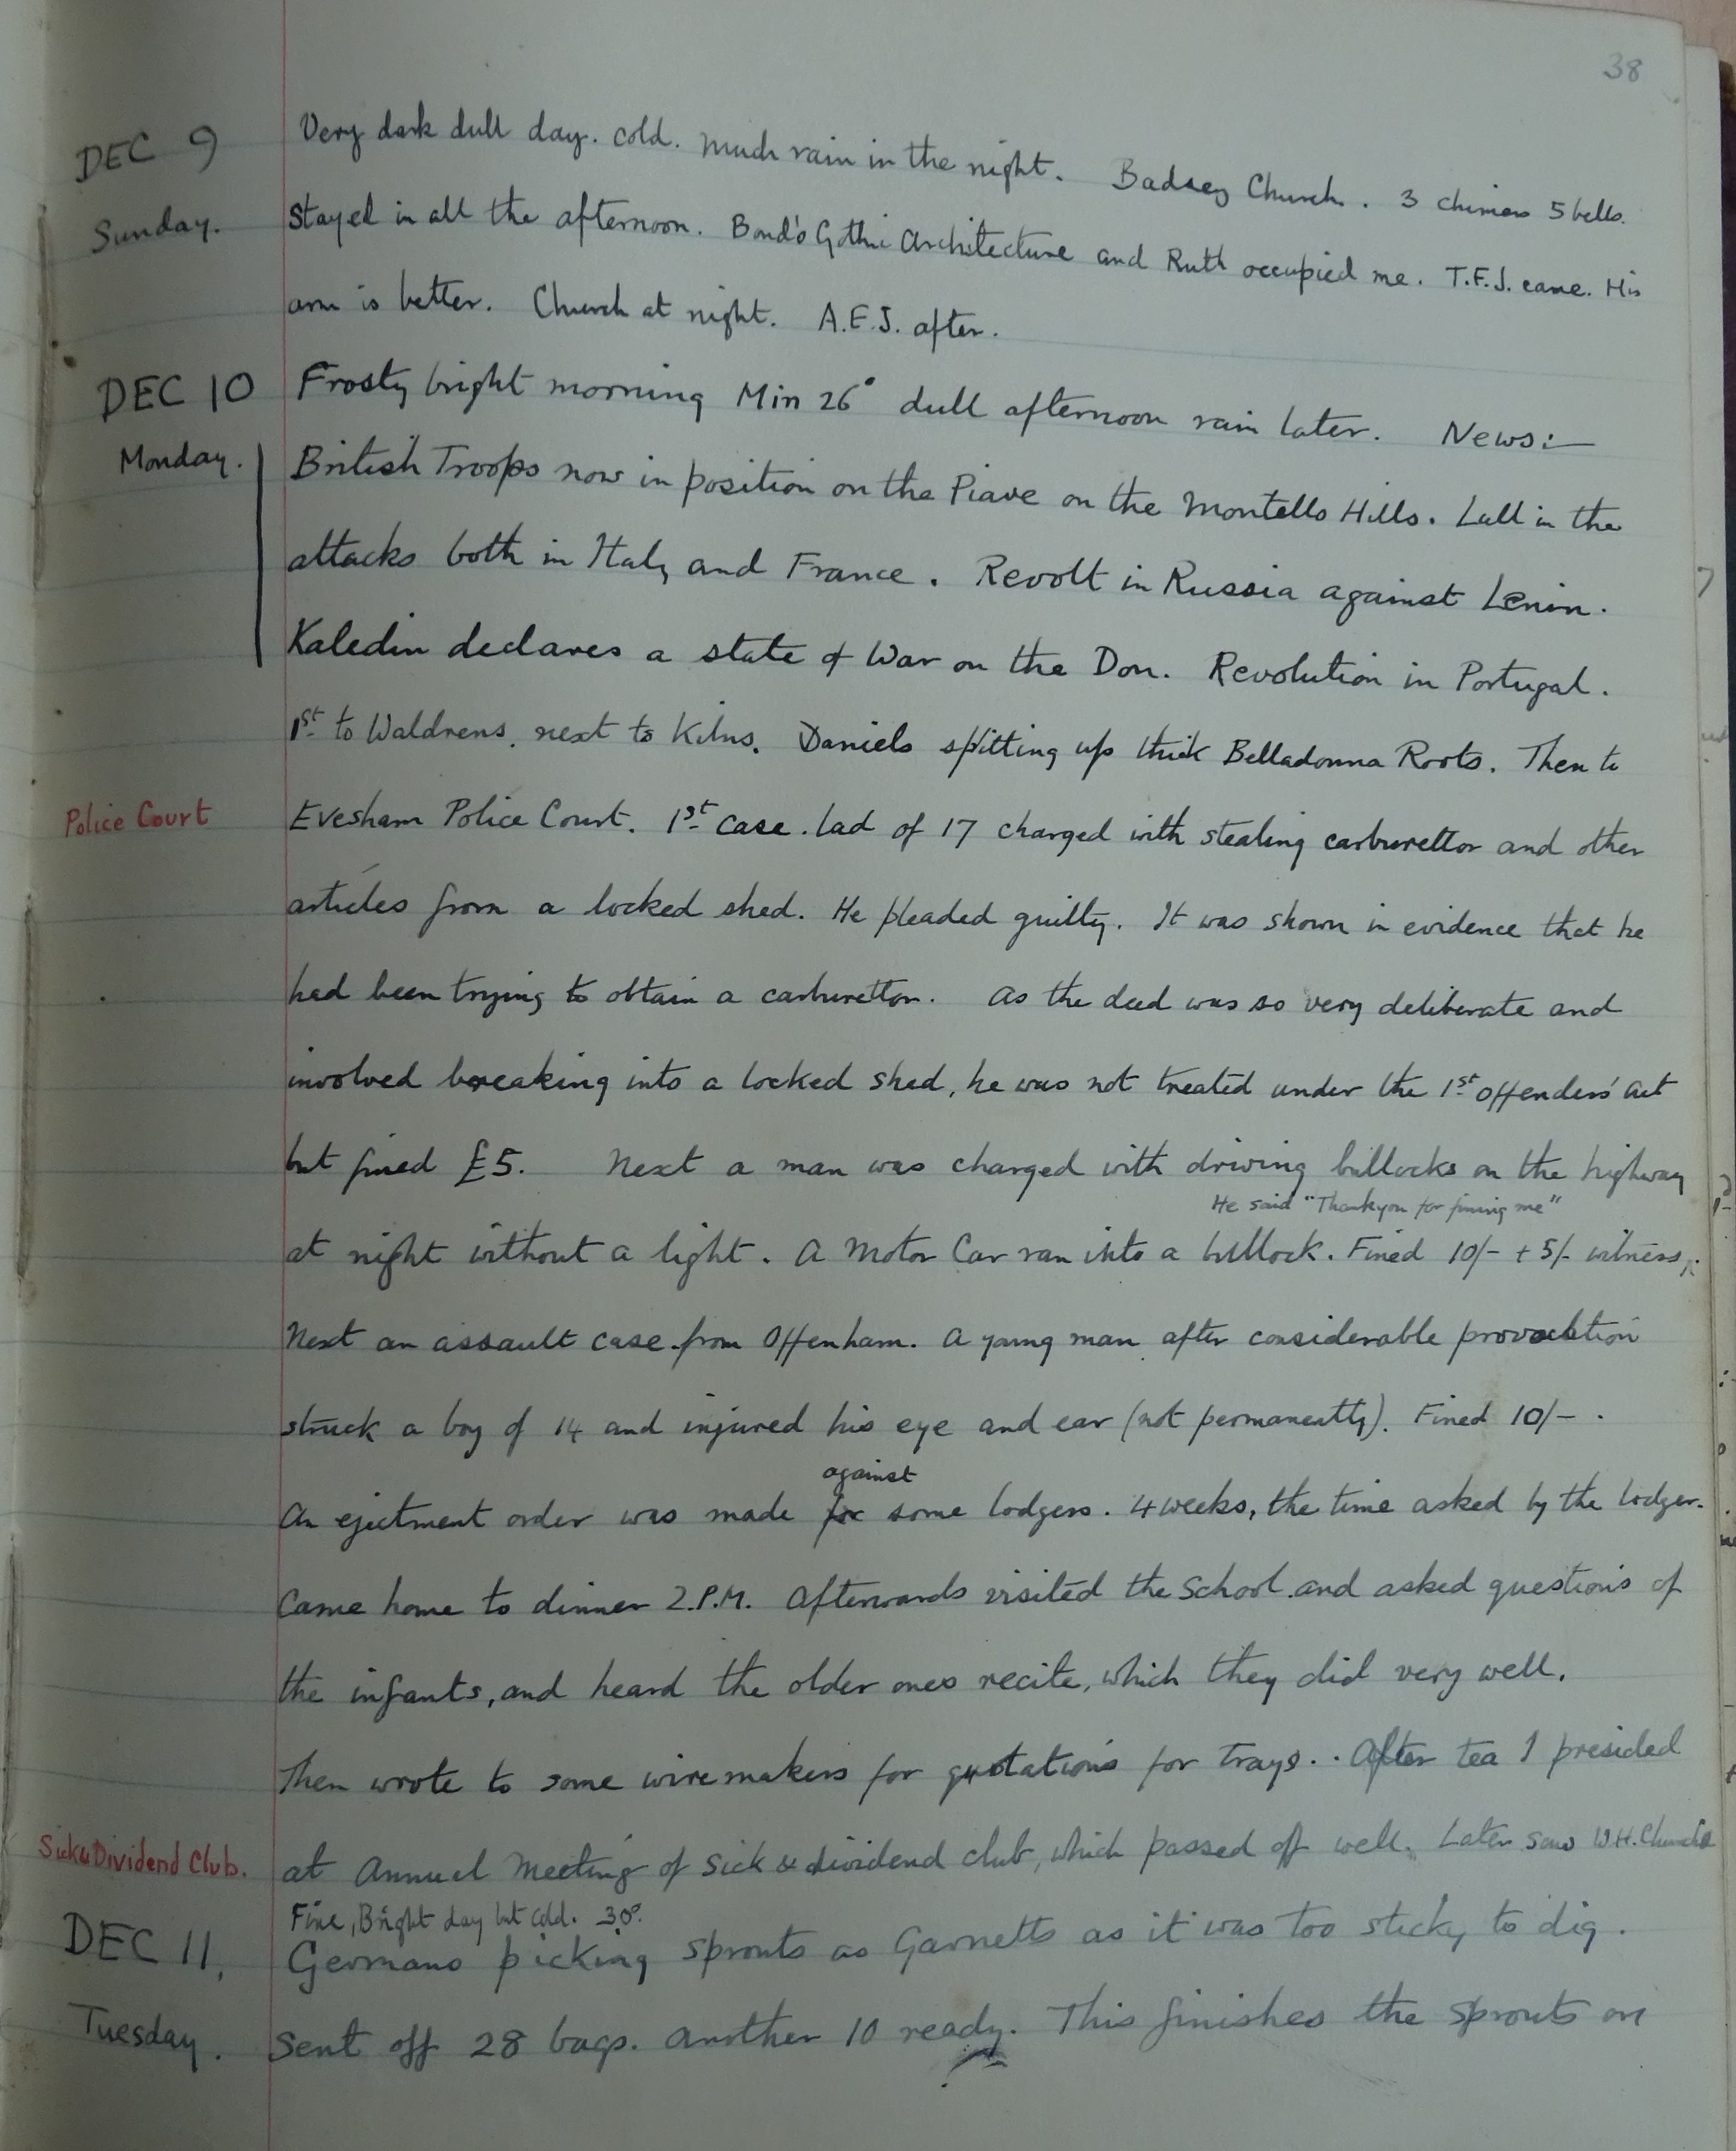 38
DEC 9 Very dark dull day. cold. Much rain in the night. Badsey Church. 3 chimers 5 bells.
Sunday. Stayed in all the afternoon. Bond's Gothic Architecture and Ruth occupied me. T.F.J. came. His
arm is better. Church at night. A.E.J. after.
DEC 10 Frosty bright morning Min 26° dull afternoon rain later. News:—
Monday. British Troops now in position on the Piave on the Montello Hills. Lull in the
attacks both in Italy and France. Revolt in Russia against Lenin.
Kaledin declares a state of War on the Don. Revolution in Portugal.
1st to Waldrens, next to Kilns. Daniels splitting up thick Belladonna Roots. Then to
Police Court Evesham Police Court. 1st case. lad of 17 charged with stealing carburettor and other
articles from a locked shed. He pleaded guilty. It was shown in evidence that he
had been trying to obtain a carburettor. As the deed was so very deliberate and
involved breaking into a locked shed, he was not treated under the 1st offenders' act
but fined £5. Next a man was charged with driving bullocks on the highway
He said "Thank you for fining me"
at night without a light. A Motor Car ran into a bullock. Fined 10/- + 5/- witness.
Next an assault case from Offenham. A young man after considerable provocation
struck a boy of 14 and injured his eye and ear (not permanently). Fined 10/- .
against
An ejectment order was made for some lodgers. 4 weeks, the time asked by the lodger.
Came home to dinner 2.P.M. Afterwards visited the School and asked questions of
the infants, and heard the older ones recite, which they did very well.
Then wrote to some wire makers for quotations for trays.. After tea I presided
Sick & Dividend Club. at Annual Meeting of Sick & dividend club, which passed off well. Later saw W.H.
Fine, Bright day but cold. 30°.
DEC 11, Germans picking sprouts as Garnetts as it was too sticky to dig.
Tuesday. Sent off 28 bags. Another 10 ready. This finishes the sprouts on